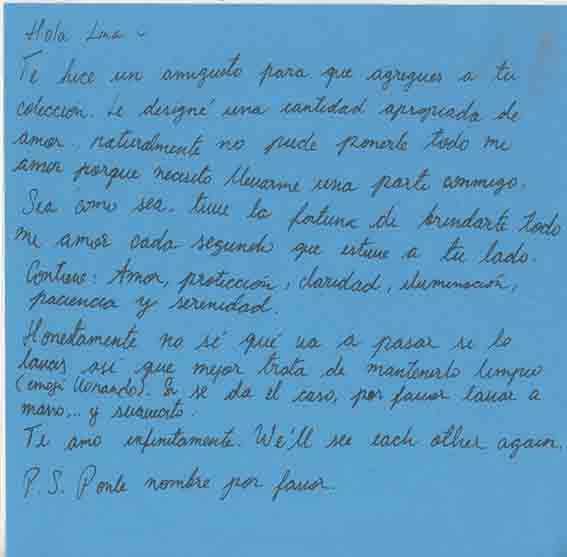 Hola Lina ~
Te hice un amiguito para que agregues a tu
colección. Le designé una cantidad apropiada de
amor, naturalmente no pude ponerle todo mi
amor porque necisito llevarme una parte conmigo.
Sea como sea, tuve la fortuna de brindarte todo
mi amor cada segundo que estuve a tu lado.
Contiene: Amor, protección, claridad, iluminación,
paciencia y serenidad.
Honestamente no sé qué va a pasar si lo
lavas así que mejor trata de mantenerlo limpio
(emoji llorando). Si se da el caso, por favor lavar a
mano... y suavecito.
Te amo infinitamente. We'll see each other again.
P.S. Ponle nombre por favor.